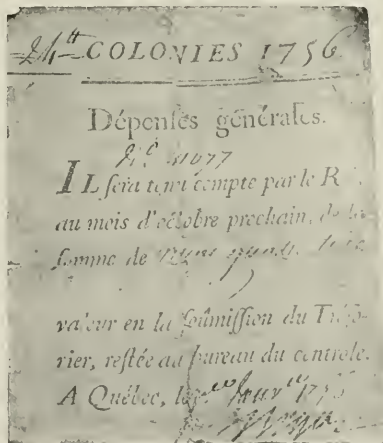 24ᵗᵗ COLONIES 1756
Dépenſes générales.
IL ſera tenu compte par le R
au mois d'octobre prochain, de la
ſomme de vingt quatre livres
valeur en la ſoûmiſſion du Tréſo-
rier, reſtée au bureau du contrôle.
A Québec, le